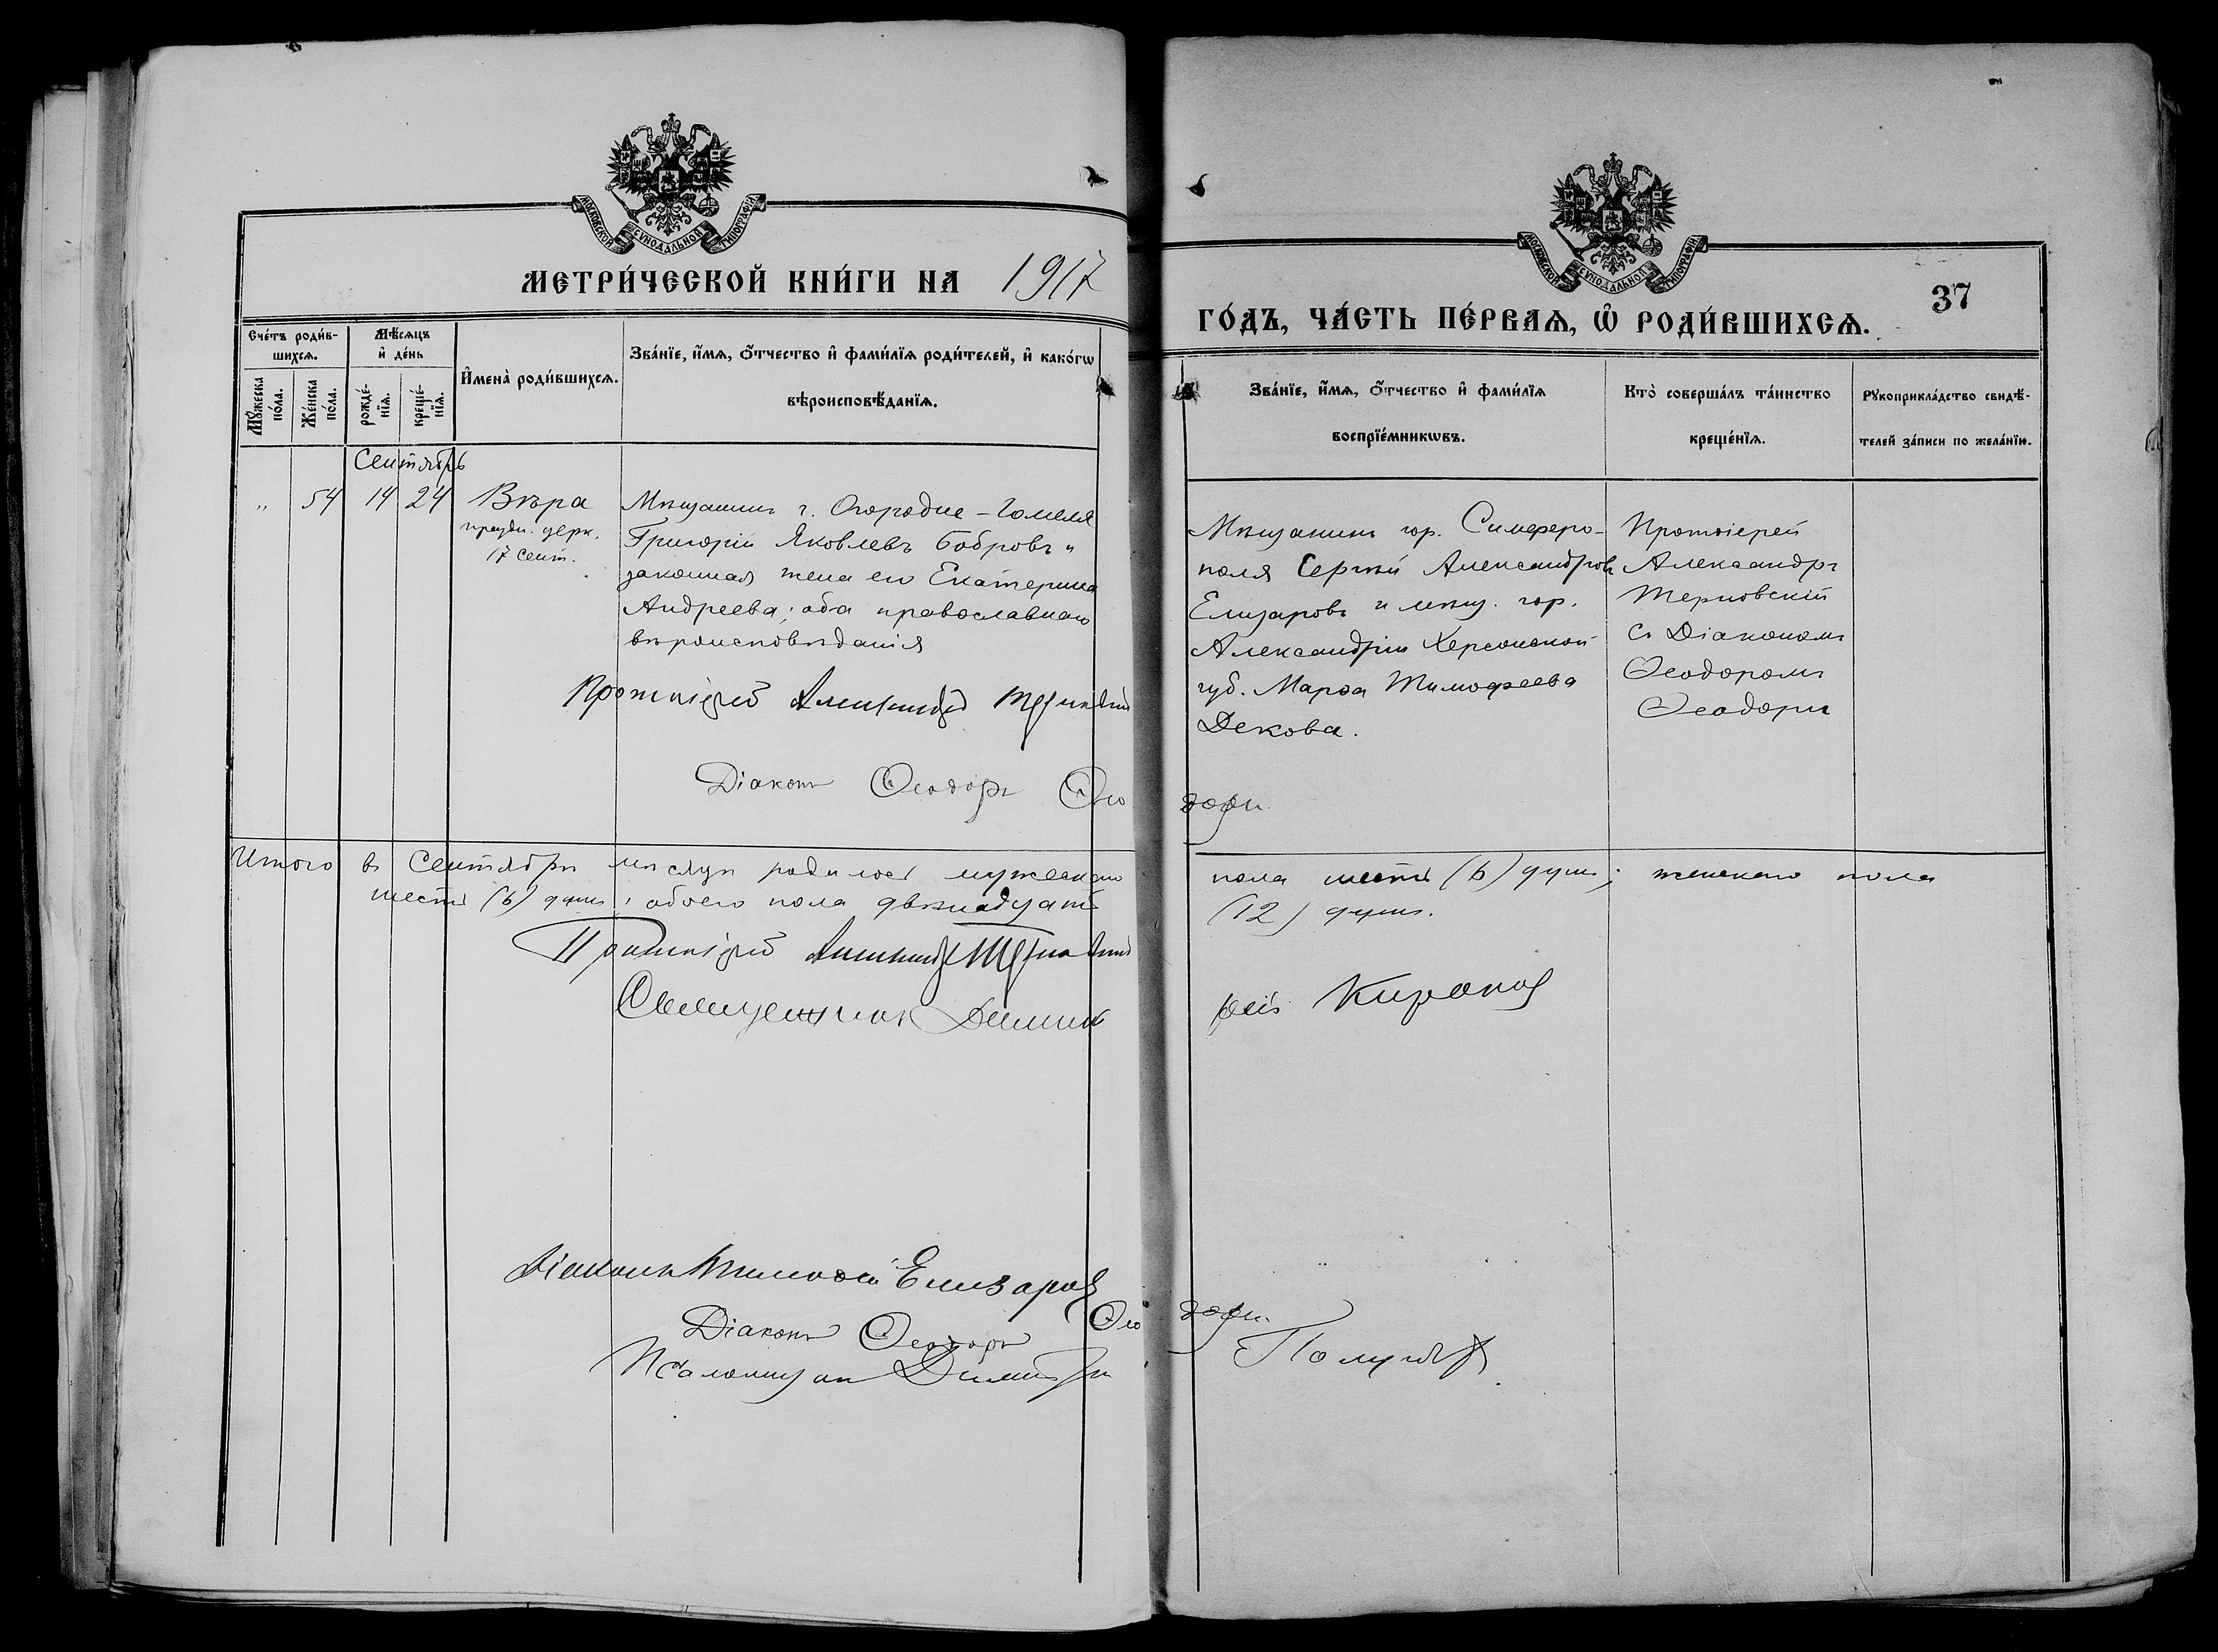 МОСКОВСКОЙ СѴНОДАЛЬНОЙ ТИПОГРАФІИ
МЕТРИ́ЧЕСКОЙ КНИ́ГИ НА 1917
Сче́тъ роди́в-
шихсѧ.
Мꙋ́жеска по́ла.
Же́нска по́ла.
Мѣ́сѧцъ
и҆ де́нь
рожде́-
нїѧ.
креще́-
нїѧ.
И҆мена̀ роди́вшихсѧ.
Зва́нїе, и҆́мѧ, ѻ҆́тчество и҆ фами́лїѧ роди́телей, и҆ како́гѡ
вѣроисповѣ́данїѧ.
Сентябрь
" 54 14 24 Вѣра
праздн. церк.
17 сент.
Мѣщанинъ г. Огородне-Гомеля
Григорій Яковлевъ Бобровъ и
законная жена его Екатерина
Андреева; оба православнаго
вѣроисповѣданія
Протоіерей Александръ Терновскій
Діаконъ Ѳеодоръ Ѳео
Итого в Сентябрѣ мѣсяцѣ родилось мужескаго
шесть (6) душъ, обоего пола двѣнадцать
Протоіерей Александръ Терновскій
Священник Димит
Діаконъ Тимоѳей Елизаровъ
Діаконъ Ѳеодоръ Ѳео
Псаломщикъ Димитрій
МОСКОВСКОЙ СѴНОДАЛЬНОЙ ТИПОГРАФІИ
ГО́ДЪ, ЧА́СТЬ ПЕ́РВАѦ, Ѡ҆ РОДИ́ВШИХСѦ.
37
Зва́нїе, и҆́мѧ, ѻ҆́тчество и҆ фами́лїѧ
воспрїе́мникѡвъ.
Кто̀ соверша́лъ та́инство
креще́нїѧ.
Рꙋкоприкла́дство свидѣ́-
телей за́писи по жела́нїю.
Мѣщанинъ гор. Симферо-
поля Сергѣй Александровъ
Елизаровъ и мѣщ. гор.
Александріи Херсонской
губ. Марѳа Тимофеева
Декова.
Протоіерей
Александръ
Терновскій
съ Діакономъ
Ѳеодоромъ
Ѳеодори
дори
пола шесть (6) душъ; женскаго пола
(12) душъ.
рій Кирановъ
дори